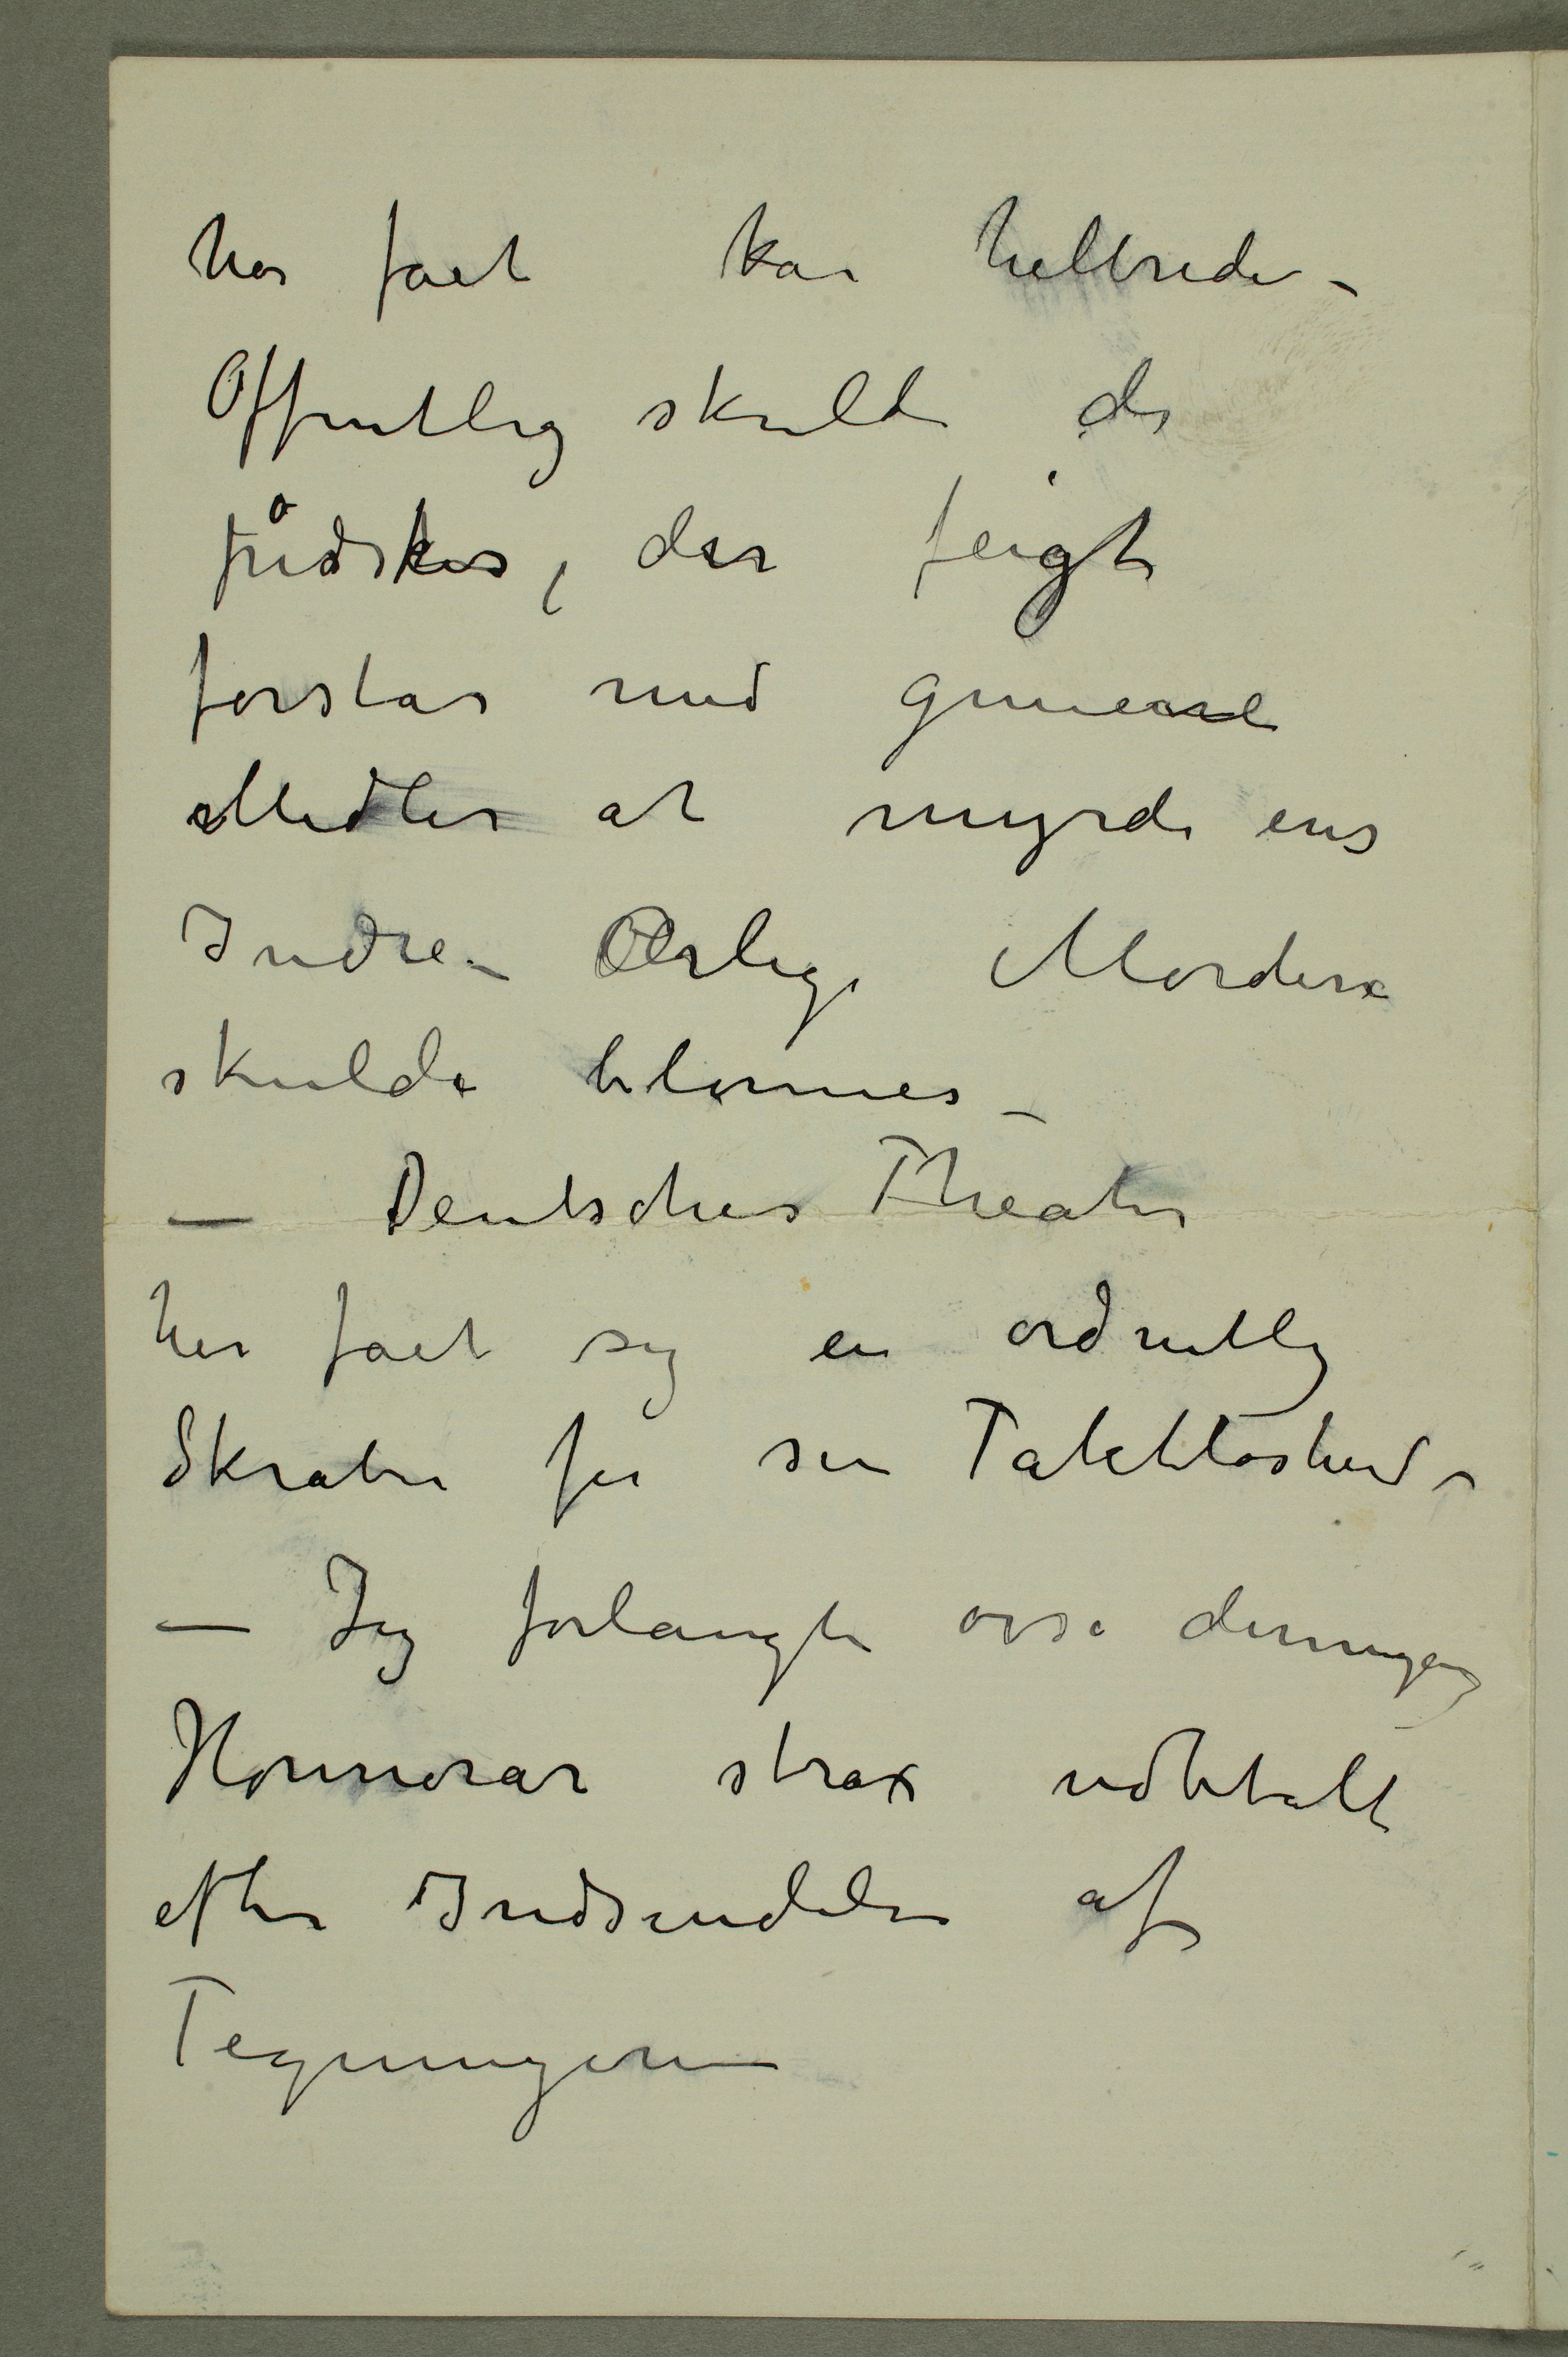 har fået kan helbrede –
Offentlig skulde de
pidskes, der feigt
forstår med gemene
Midler at myrde ens
Indre – Ærlige Mordere
skulde belønnes –
– Deutsches Theater
har fået sig en ordentlig
Skrabe for sin Taktløshed –
– Jeg forlangte osså dennegang
Honnorar strax udbetalt
efter Indsendelsen af
Tegningerne